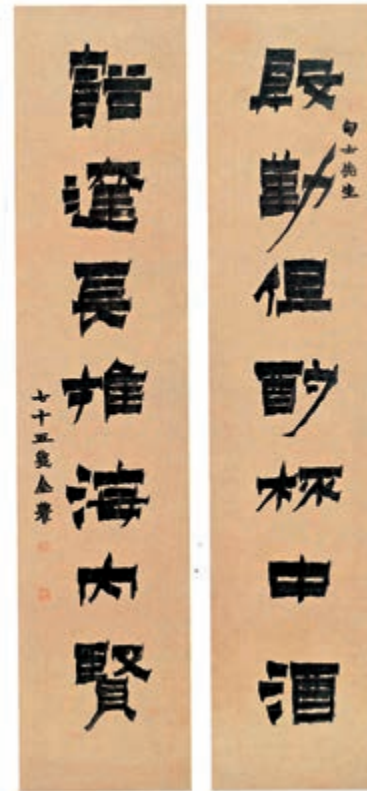 殷勤但酌杯中酒
士先生
豁達長推海内賢
七十五叟金農